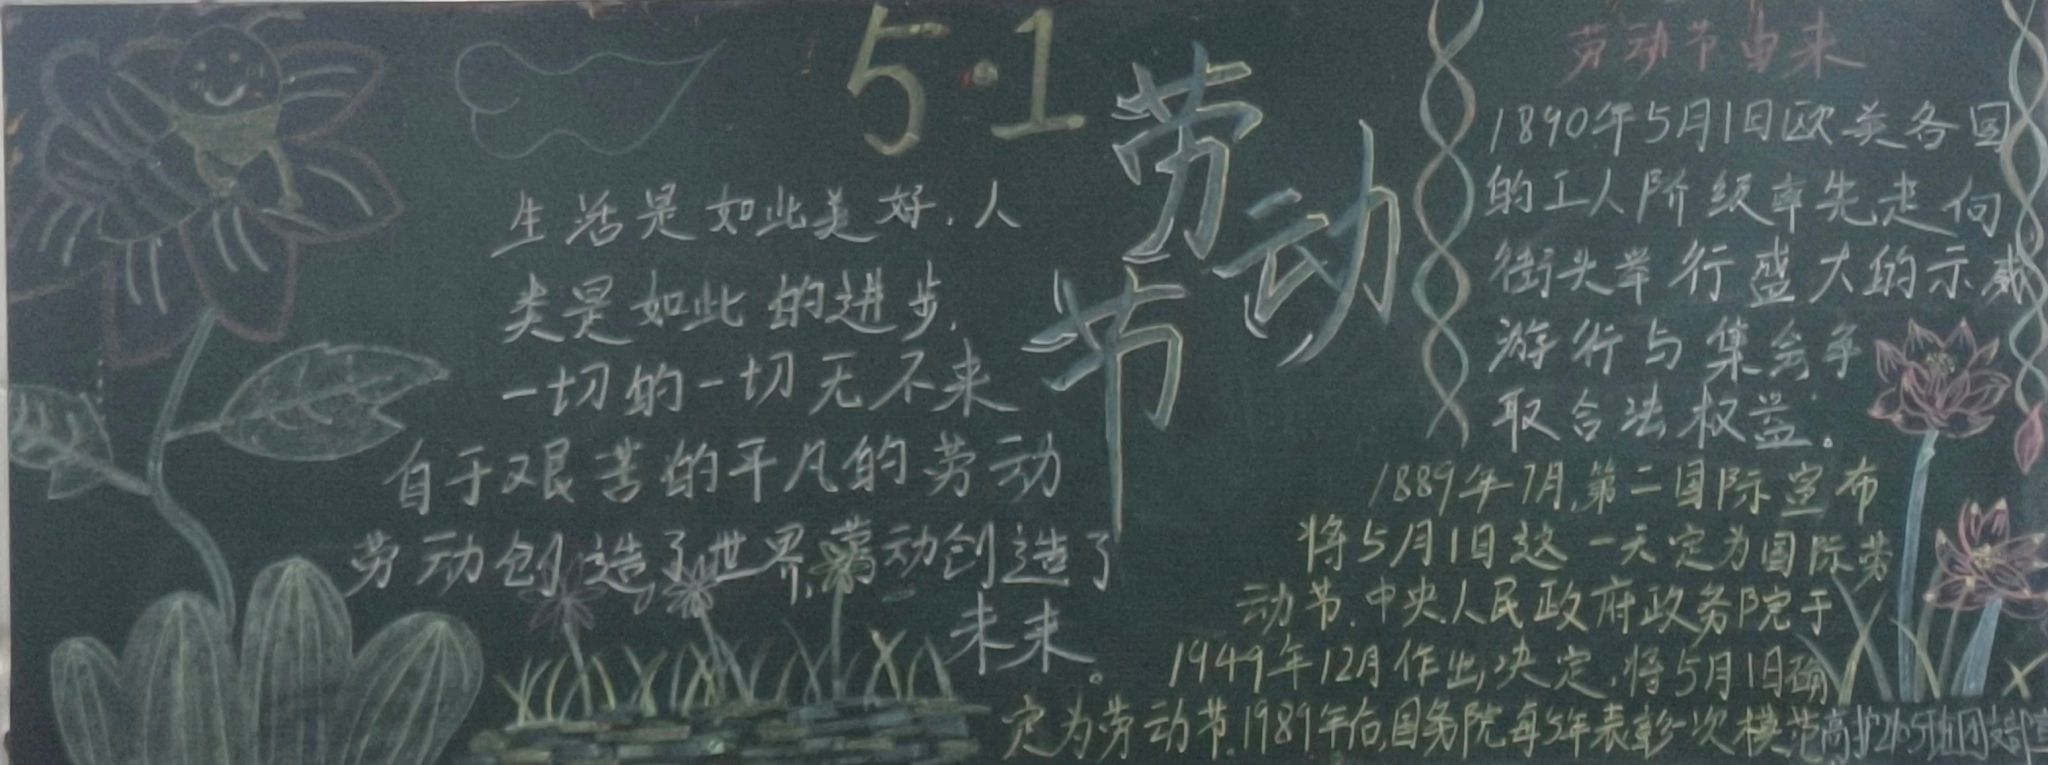 5·1
劳动
节
生活是如此美好,人
类是如此的进步,
一切的一切无不来
自于艰苦的平凡的劳动
劳动创造了世界,劳动创造了
未来。
劳动节由来
1890年5月1日欧美各国
的工人阶级率先走向
街头举行盛大的示威
游行与集会争
取合法权益。
1889年7月,第二国际宣布
将5月1日这一天定为国际劳
动节.中央人民政府政务院于
1949年12月作出决定,将5月1日确
定为劳动节.1989年后,国务院每5年表彰一次模范
高护265班团支部